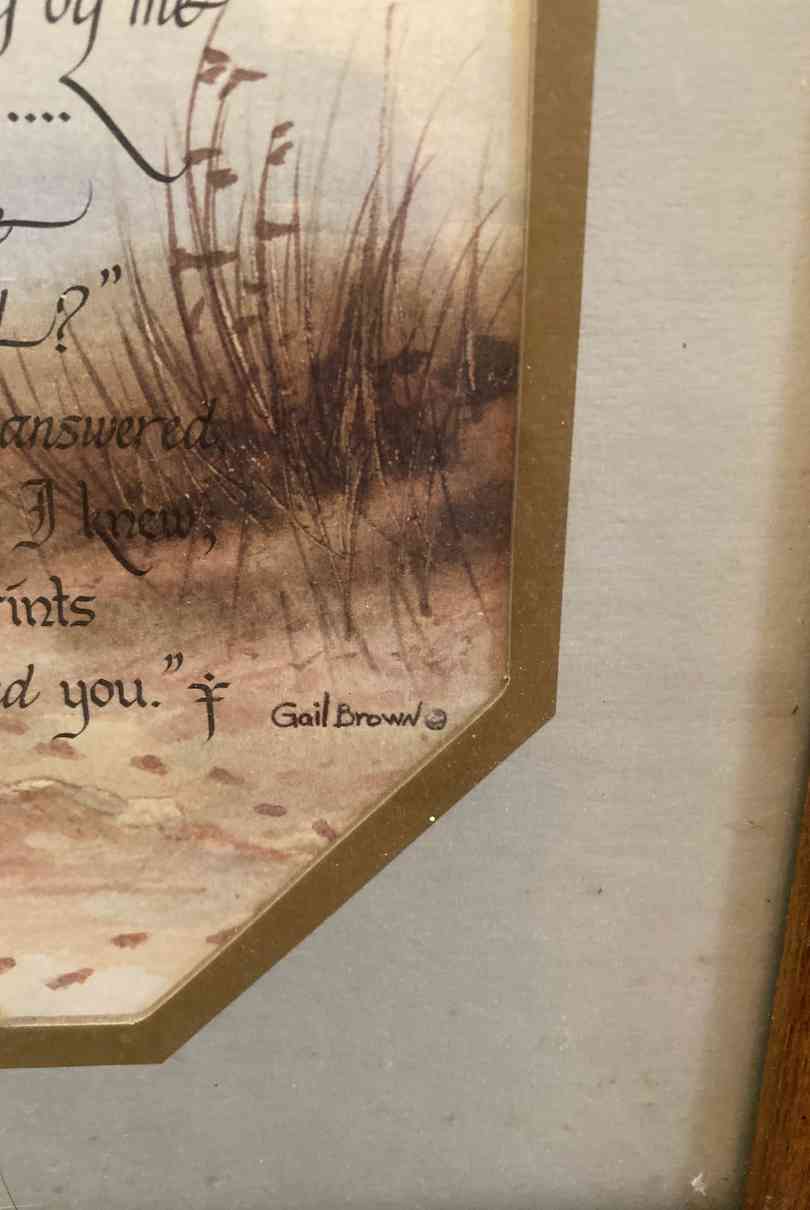 by me
....
?"
answered,
I knew;
you."
Gail Brown